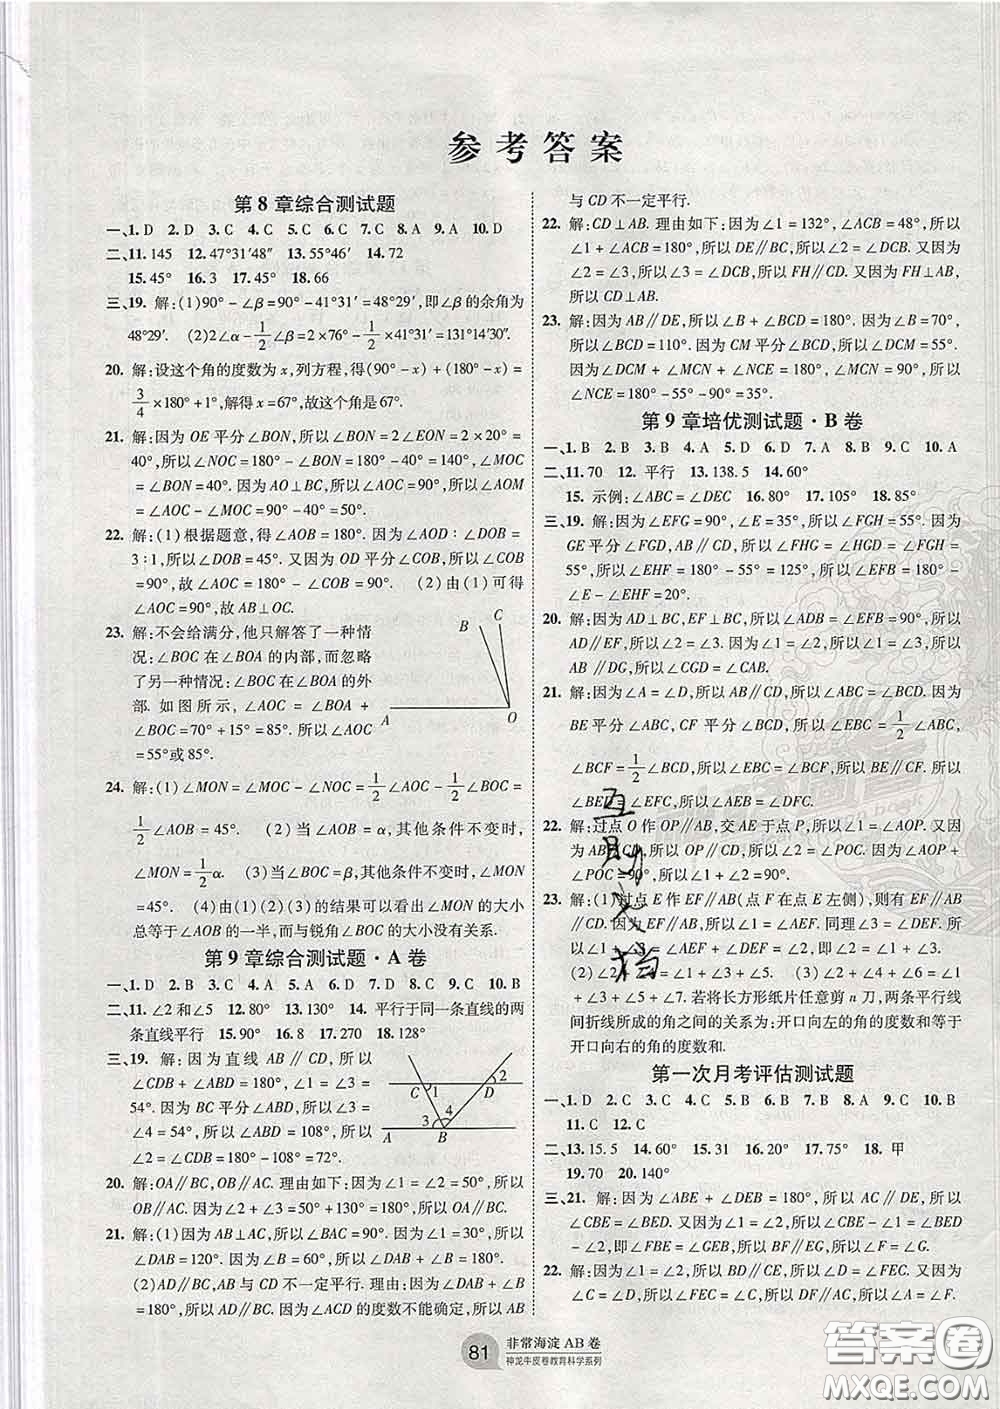 参考答案
第8章综合测试题
一、1. D 2. D 3. C 4. C 5. C 6. C 7. C 8. A 9. A 10. D
二、11. 145 12. 47°31′48″ 13. 55°46′ 14. 72
15. 45° 16. 3 17. 45° 18. 66
三、19. 解:(1)90°-∠β=90°-41°31′=48°29′,即∠β的余角为
48°29′. (2)2∠α-1/2∠β=2×76°-1/2×41°31′=131°14′30″.
20. 解:设这个角的度数为x,列方程,得(90°-x)+(180°-x)=
3/4×180°+1°,解得x=67°,故这个角是67°.
21. 解:因为OE平分∠BON,所以∠BON=2∠EON=2×20°=
40°,所以∠NOC=180°-∠BON=180°-40°=140°,∠MOC
=∠BON=40°. 因为AO⊥BC,所以∠AOC=90°,所以∠AOM
=∠AOC-∠MOC=90°-40°=50°.
22. 解:(1)根据题意,得∠AOB=180°. 因为∠AOD∶∠DOB=
3∶1,所以∠DOB=45°. 又因为OD平分∠COB,所以∠COB
=90°,故∠AOC=180°-∠COB=90°. (2)由(1)可得
∠AOC=90°,故AB⊥OC.
23. 解:不会给满分,他只解答了一种情
况:∠BOC在∠BOA的内部,而忽略
了另一种情况:∠BOC在∠BOA的外
部. 如图所示,∠AOC=∠BOA+
∠BOC=70°+15°=85°,故∠AOC
=55°或85°.
B
C
A
O
24. 解:(1)∠MON=∠MOC-∠NOC=1/2∠AOC-1/2∠BOC=
1/2∠AOB=45°. (2)当∠AOB=α,其他条件不变时,
∠MON=1/2α. (3)当∠BOC=β,其他条件不变时,∠MON
=45°. (4)由(1)(2)(3)的结果可以看出∠MON的大小
总等于∠AOB的一半,而与锐角∠BOC的大小没有关系.
第9章综合测试题·A卷
一、1. D 2. B 3. D 4. C 5. B 6. C 7. D 8. C 9. C 10. B
二、11. ∠2和∠5 12. 80° 13. 130° 14. 平行于同一条直线的两
条直线平行 15. 90° 16. 8 17. 270 18. 128°
三、19. 解:因为直线AB∥CD,所以
∠CDB+∠ABD=180°,∠1=∠3=
54°. 因为BC平分∠ABD,所以∠3=
∠4=54°,所以∠ABD=108°,所以
∠2=∠CDB=180°-108°=72°.
C
1
D
2
3
4
A
B
20. 解:OA∥BC,OB∥AC. 理由如下:因为∠1=50°,∠2=50°,所
以∠1=∠2,所以OB∥AC. 因为∠2=50°,∠3=130°,所以
∠2+∠3=50°+130°=180°,所以OA∥BC.
21. 解:(1)因为AB⊥AC,所以∠BAC=90°. 因为∠1=30°,所以
∠DAB=120°. 因为∠B=60°,所以∠DAB+∠B=180°.
(2)AD∥BC,AB与CD不一定平行. 理由:因为∠DAB+∠B
=180°,所以AD∥BC. 因为∠ACD的度数不能确定,所以AB
与CD不一定平行.
22. 解:CD⊥AB. 理由如下:因为∠1=132°,∠ACB=48°,所以
∠1+∠ACB=180°,所以DE∥BC,所以∠2=∠DCB. 又因为
∠2=∠3,所以∠3=∠DCB,所以FH∥CD. 又因为FH⊥AB,
所以CD⊥AB.
23. 解:因为AB∥DE,所以∠B+∠BCD=180°. 因为∠B=70°,
所以∠BCD=110°. 因为CM平分∠BCD,所以∠DCM=55°.
因为∠DCM+∠MCN+∠NCE=180°,∠MCN=90°,所以
∠NCE=180°-55°-90°=35°.
第9章培优测试题·B卷
一、1. B 2. B 3. B 4. A 5. D 6. D 7. D 8. C 9. C 10. A
二、11. 70 12. 平行 13. 138.5 14. 60°
15. 示例:∠ABC=∠DEC 16. 80° 17. 105° 18. 85°
三、19. 解:因为∠EFG=90°,∠E=35°,所以∠FGH=55°. 因为
GE平分∠FGD,AB∥CD,所以∠FHG=∠HGD=∠FGH=
55°,所以∠EHF=180°-55°=125°,所以∠EFB=180°-125°
-∠E=∠EHF=20°.
20. 解:因为AD⊥BC,EF⊥BC,所以∠ADB=∠EFB=90°,所以
AD∥EF,所以∠2=∠3. 因为∠1=∠2,所以∠1=∠3,所以
AB∥DG,所以∠CGD=∠CAB.
21. 解:因为∠A=∠D,所以AB∥CD,所以∠ABC=∠BCD. 因为
BE平分∠ABC,CF平分∠BCD,所以∠EBC=1/2∠ABC,
∠BCF=1/2∠BCD,所以∠EBC=∠BCF,所以BE∥CF. 所以
∠BEF=∠EFC,所以∠AEB=∠DFC.
22. 解:过点O作OP∥AB,交AE于点P,所以∠1=∠AOP. 又因
为AB∥CD,所以OP∥CD,所以∠2=∠POC. 因为∠AOP+
∠POC=90°,所以∠1+∠2=90°.
23. 解:(1)过点E作EF∥AB(点F在点E左侧),则有EF∥AB∥
CD. 因为EF∥AB,所以∠1=∠AEF. 同理∠3=∠DEF. 所以
∠1+∠3=∠AEF+∠DEF=∠2,即∠2=∠1+∠3.
(2)∠2+∠4=∠1+∠3+∠5. (3)∠2+∠4+∠6=∠1
+∠3+∠5+∠7. 若将长方形纸片任意剪n刀,两条平行线
间折线所成的角之间的关系为:开口向左的角的度数和等于
开口向右的角的度数和.
第一次月考评估测试题
一、1. D 2. C 3. C 4. C 5. B 6. B 7. B 8. A 9. C 10. B
11. C 12. C
二、13. 15.5 14. 60° 15. 31° 16. 20° 17. 75° 18. 甲
19. 70 20. 140°
三、21. 解:因为∠ABE+∠DEB=180°,所以AC∥DE,所以
∠CBE=∠BED. 又因为∠1=∠2,所以∠CBE-∠1=∠BED
-∠2,即∠FBE=∠GEB,所以BF∥GE,所以∠F=∠G.
22. 解:因为∠1=∠2,所以BD∥CE,所以∠FEC=∠D. 又因为
∠C=∠D,所以∠FEC=∠C,所以DF∥AC,所以∠A=∠F.
互助文档
81
非常海淀AB卷
神龙牛皮卷教育科学系列
答案圈
MXQE.COM